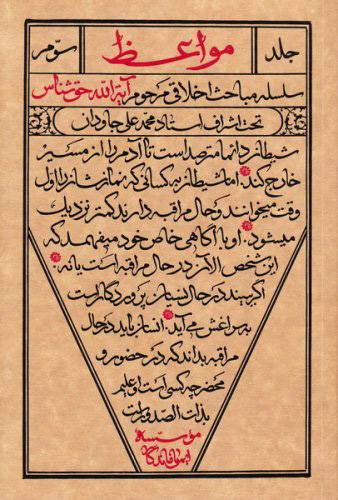 جلد مواعظ سوّم
سلسله مباحث اخلاقی مرحوم آیة الله حق شناس
تحت اشراف استاد محمد علی جاودان
شیطان دائما مترصد است تا آدم را از مسیر
خارج کند. اما شیطان به کسانی که نمازشان را اوّل
وقت میخوانند و حال مراقبه دارند کمتر نزدیک
میشود. او با آگاهی خاص خود میفهمد که
این شخص الآن در حال مراقبه است یا نه.
اگر ببیند در حال نسیان پروردگار است
به سراغش می آید. انسان باید در حال
مراقبه بداند که در حضور و
محضر چه کسی است او علیم
بذات الصدور است
موسسه
ایمان ماندگار